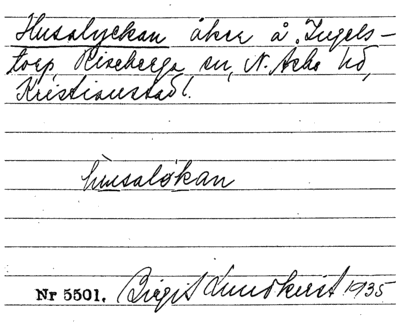 Husalyckan åker å Ingels-
torp, Riseberga sn, N. Åsbo hd,
Kristianstad l.
husalökan
Nr 5501. Birgit Lundkvist 1935